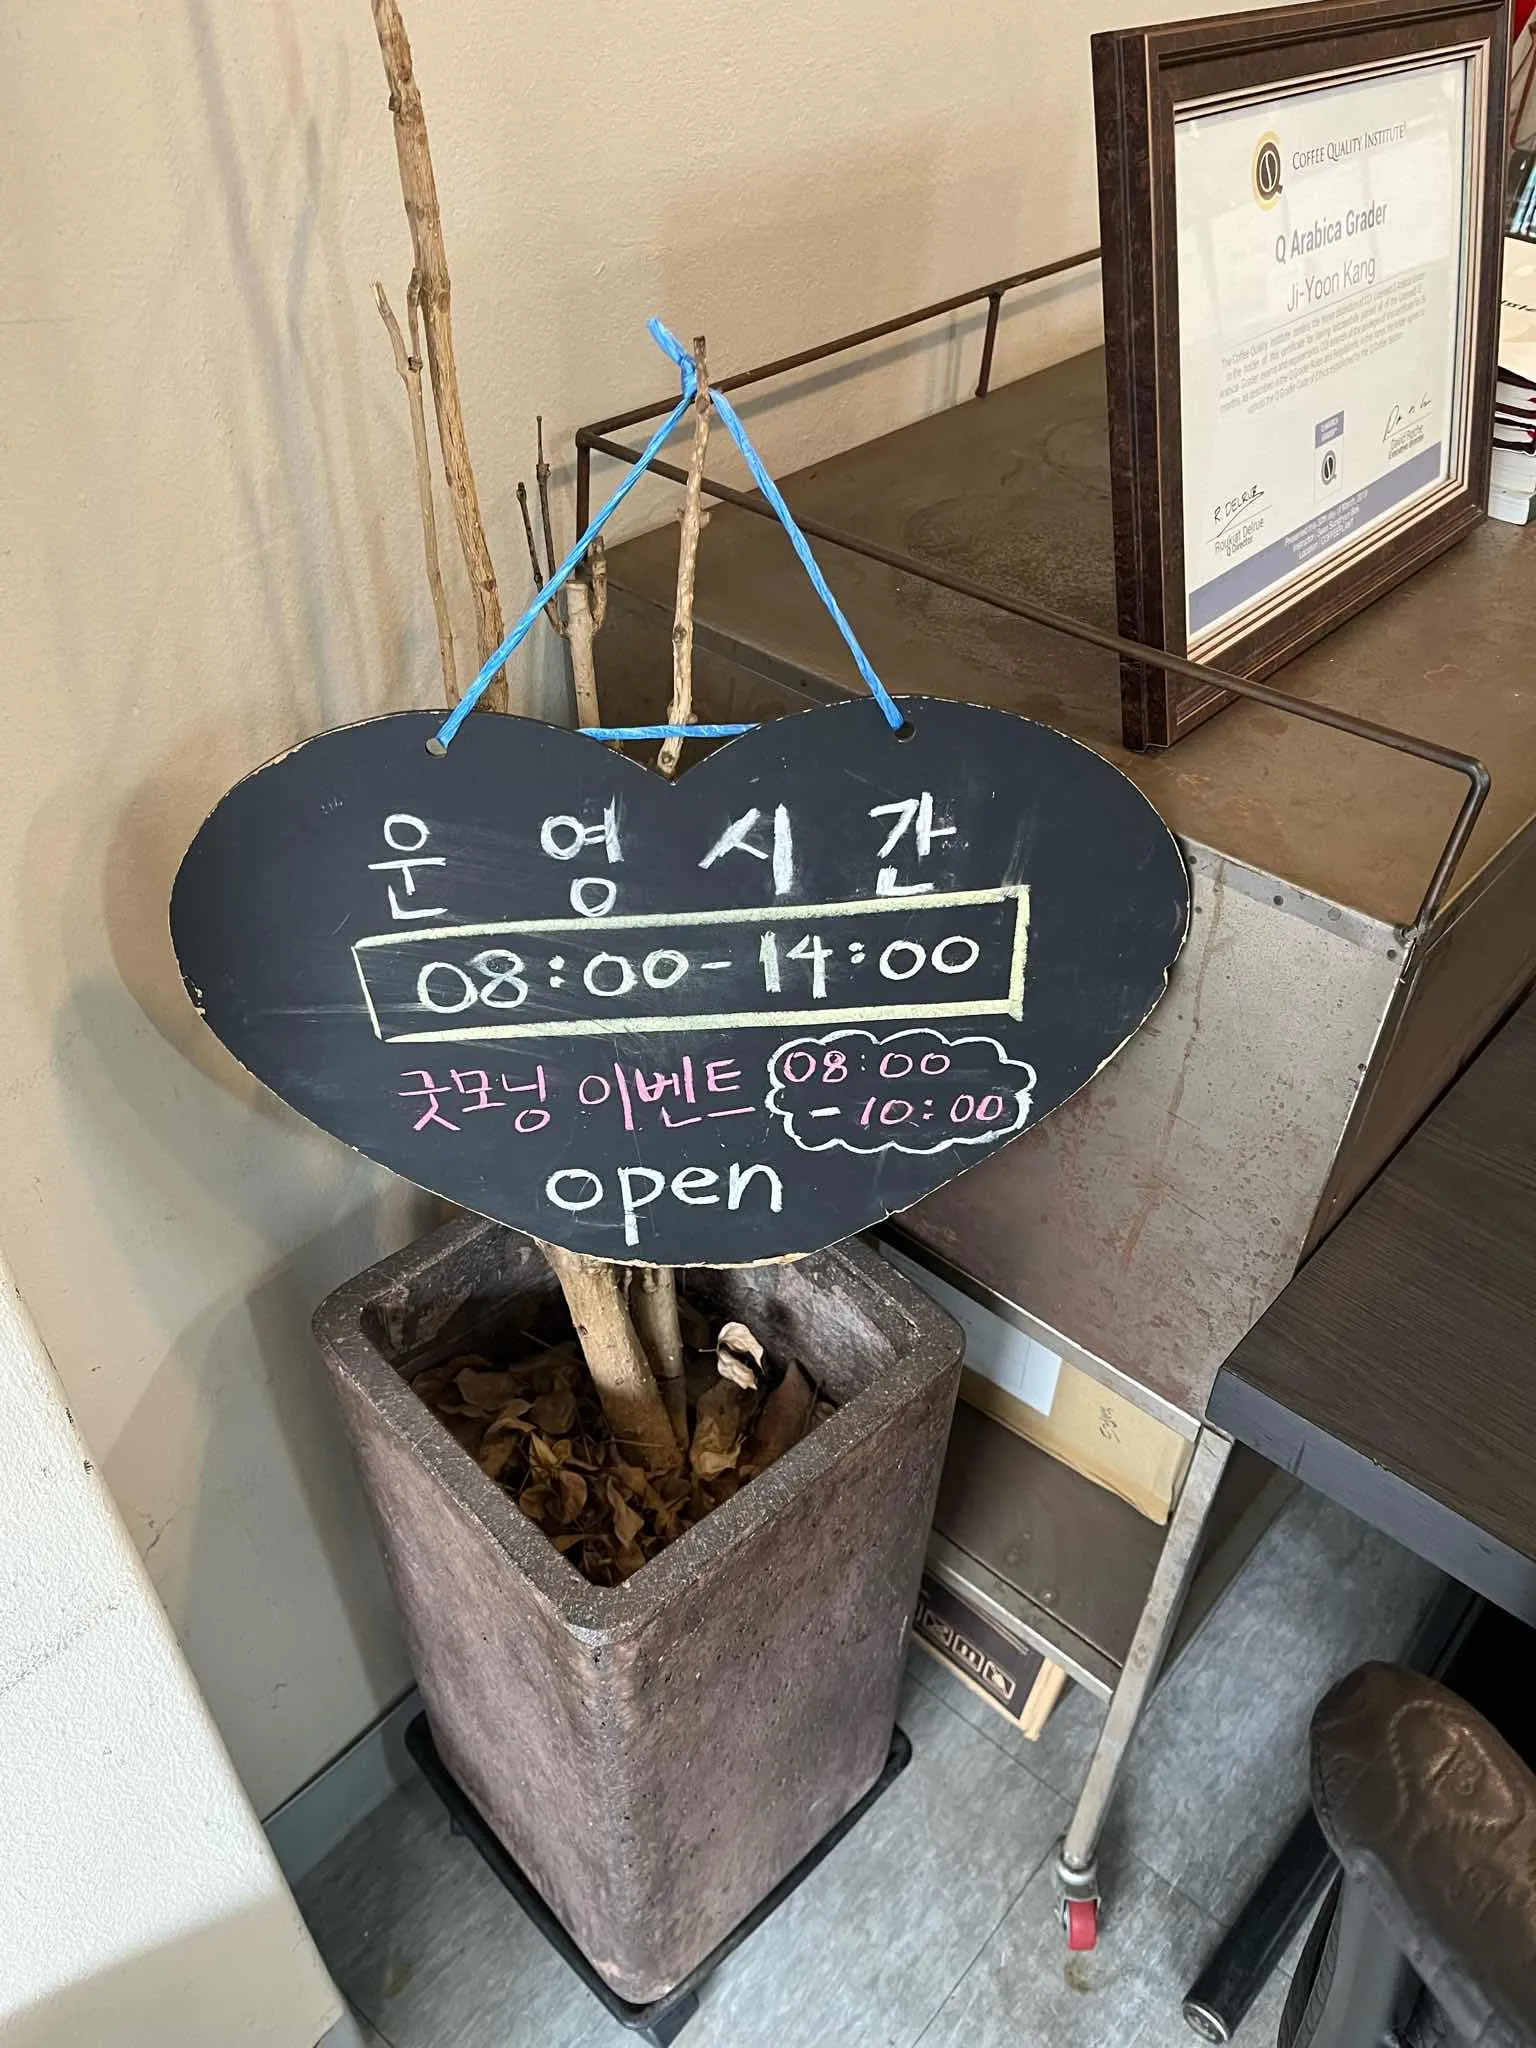 운영시간
08:00-14:00
굿모닝 이벤트 08:00
- 10:00
open
COFFEE QUALITY INSTITUTE
Q Arabica Grader
Ji-Yoon Kang
R. DELRUE
Roukiat Delrue
Q Director
David Roche
Executive Director